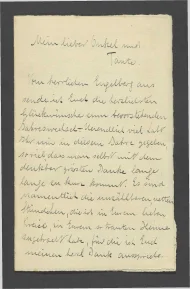 Mein lieber Onkel und
Tante.
Vom herrlichen Engelberg aus
sende ich Euch die herzlichsten
Glückwünsche zum bevorstehenden
Jahreswechsel. Unendlich viel habt
Ihr mir in diesem Jahre gegeben
so viel, das man selbst mit dem
denkbar grössten Danke lange
lange zu kurz kommt. Es sind
namentlich die unzähligen netten
Stunden, die ich in Euren lieben
Kreise, in Eurem trauten Heime
zugebracht habe, für die ich Euch
meinen herzl. Dank ausspreche.